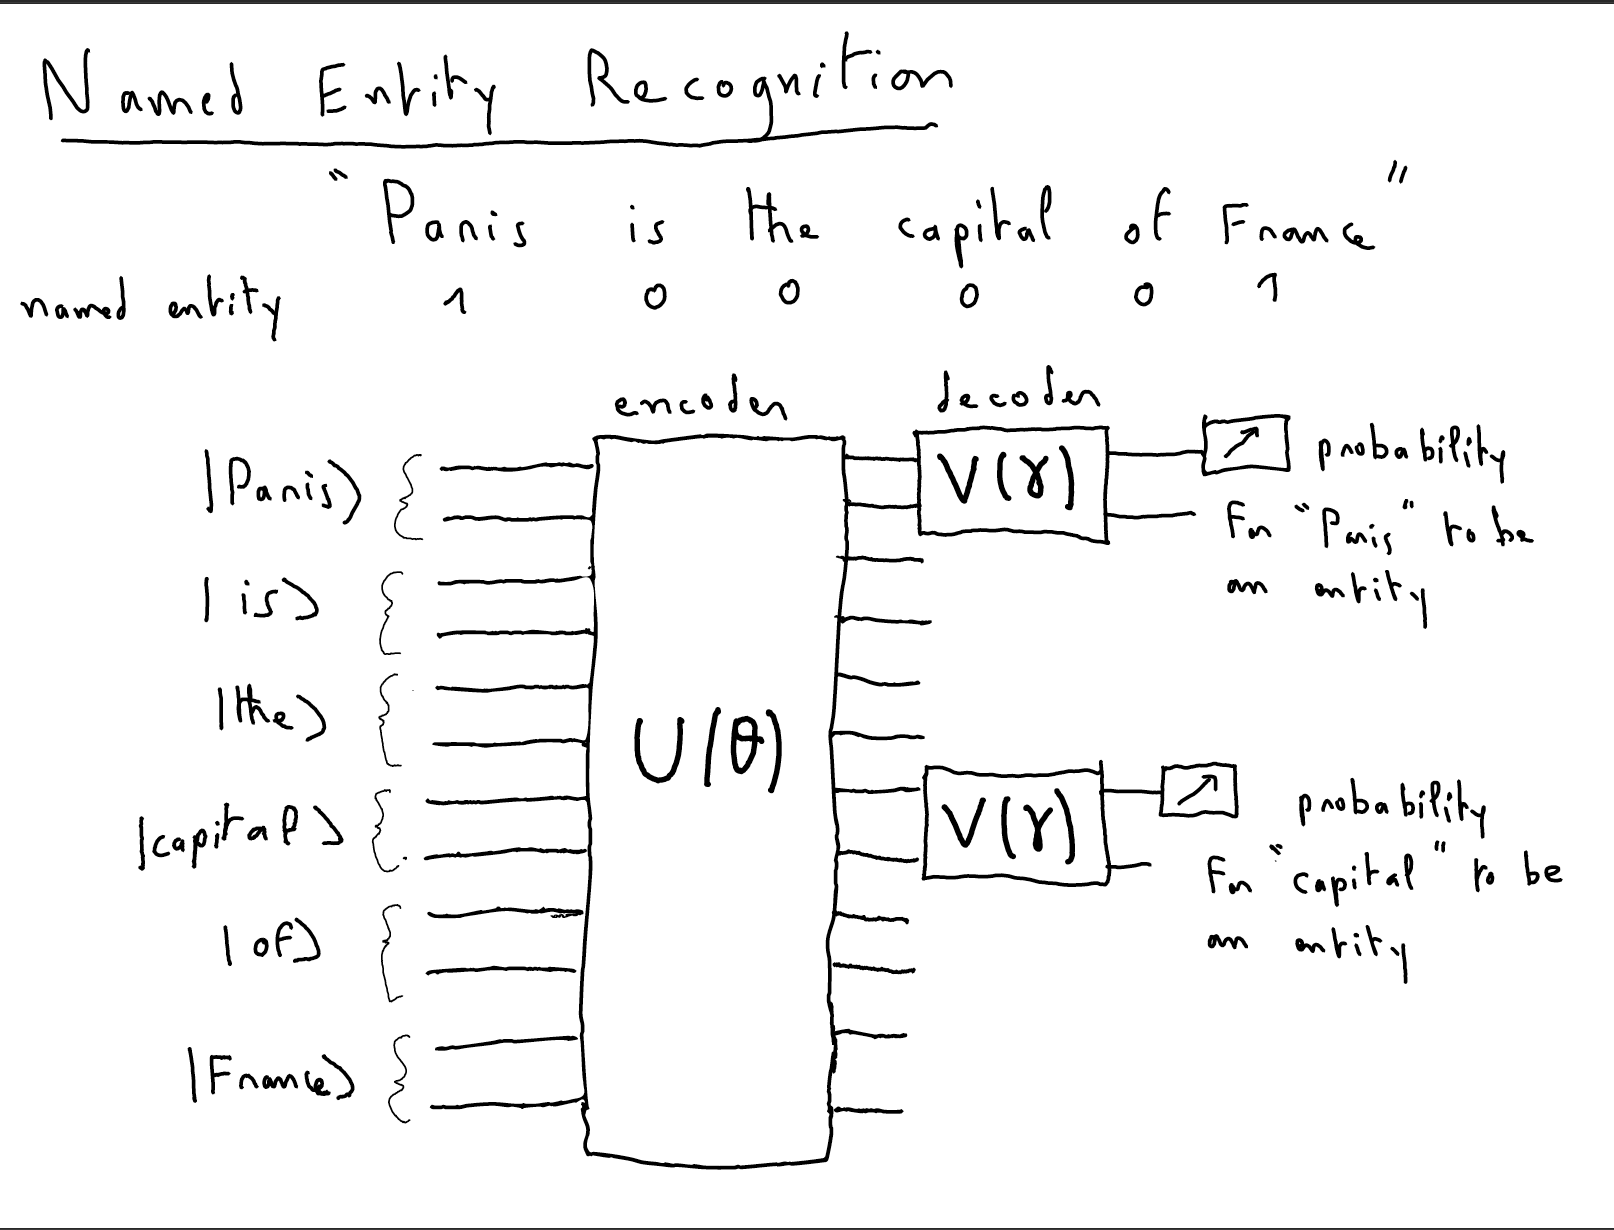 Named Entity Recognition
"Paris is the capital of France"
named entity 1 0 0 0 0 1
encoder decoder
|Paris⟩
|is⟩
|the⟩
|capital⟩
|of⟩
|France⟩
U(θ)
V(γ)
probability
for "Paris" to be
an entity
V(γ)
probability
for "capital" to be
an entity